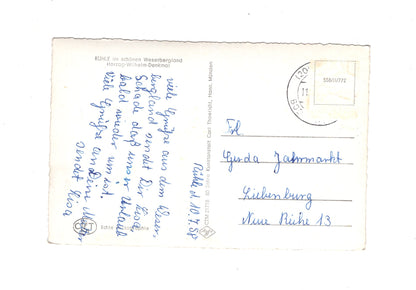 RÜHLE im schönen Weserbergland
Herzog-Wilhelm-Denkmal
Viele Grüße aus dem Weser-
bergland sendet Dir Lisa.
Schade daß unser Urlaub
bald wieder um ist.
Viele Grüße an Deine Mutter
sendet Lisa
Rühle d. 10.7.58
Echte Photographie
556/11/772
Frl.
Gerda Jahnmarkt
Liebenburg
Neue Reihe 13